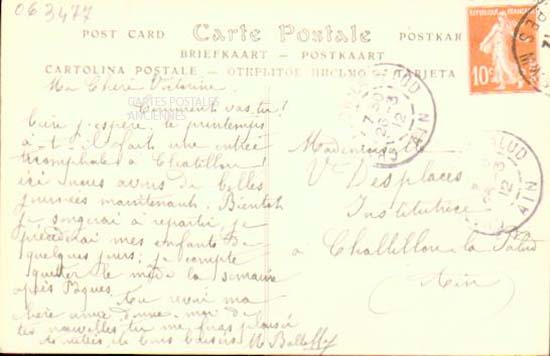 063477
Carte Postale
POST CARD
POSTKAR
BRIEFKAART - POSTKAART
CARTOLINA POSTALE - ОТКРЫТОЕ ПИСЬМО
TARJETA
REPUBLIQUE FRANÇAISE
10c
CARTES POSTALES
ANCIENNES
Ma Chère Victorine
Comment vas-tu?
j'espère. le printemps
a-t-il fait une entrée
triomphale à Chatillon!
ici nous avons de belles
journées maintenant. Bientôt
je songerai à repartir, je
précéderai mes enfants de
quelques jours; je compte
quitter le midi la semaine
après Pâques.
Au revoir ma
chère amie donne-moi de
tes nouvelles tu me feras plaisir
bons baisers
Mademoiselle
Vne Desplaces
Institutrice
à Chatillon-la-Palud
(Ain)
PALUD
7 30
26-3
12
AIN
PALUD
12
AIN